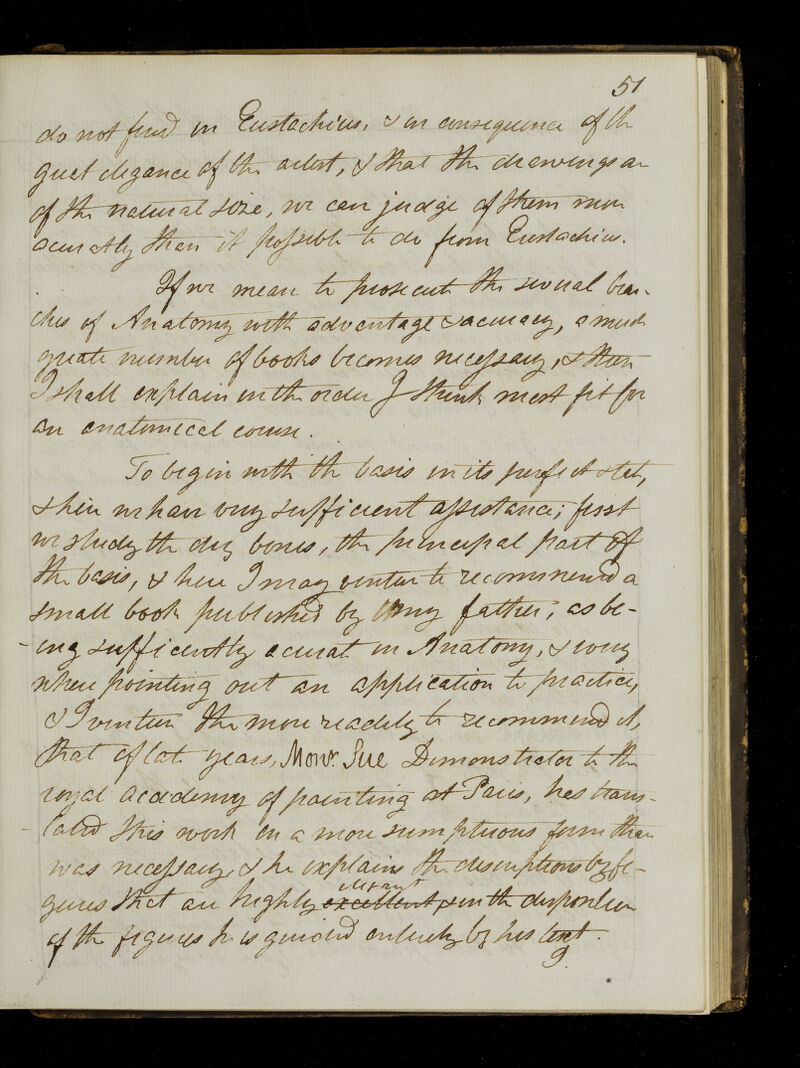 51
do not find in Eustachius, & in consequence of th
great elegance of the artist, & that the drawings ar
of the natural size, we can judge of them mor
acuratly than it possible to do from Eustachius.
If we mean to prosecute the several bran-
ches of Anatomy with advantage & acuracy, a much
greate number of books becomes necessary, & these
I shall explain in the order I think most fit for
an anatomical course.
To begin with the basis in its perfect state,
& here we have very sufficient assistance; first
we study the dry bones, the principal part of
the basis, & here I may venture to recommend a
small book published by my father, as be-
ing sufficiently acurat in Anatomy, & every
where pointing out an application to practice,
& I venture the more readily to recommend it,
that of late years, Monr. Sue Demonstrator to the
royal academy of painting at Paris, has trans-
lated this work in a more sumptuous form than
was necessary, & he explains the descriptions by fi-
elegant
gures that are highly excellent & in the disposition
of the figures he is guided entirely by his text.
9.